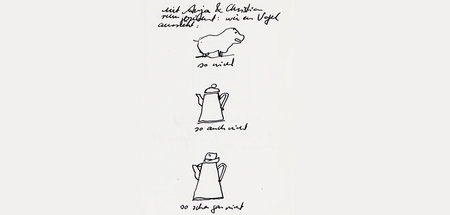 mit Anja & Christian
wie ein Vogel
aussieht:
so nicht
so auch nicht
so schon gar nicht